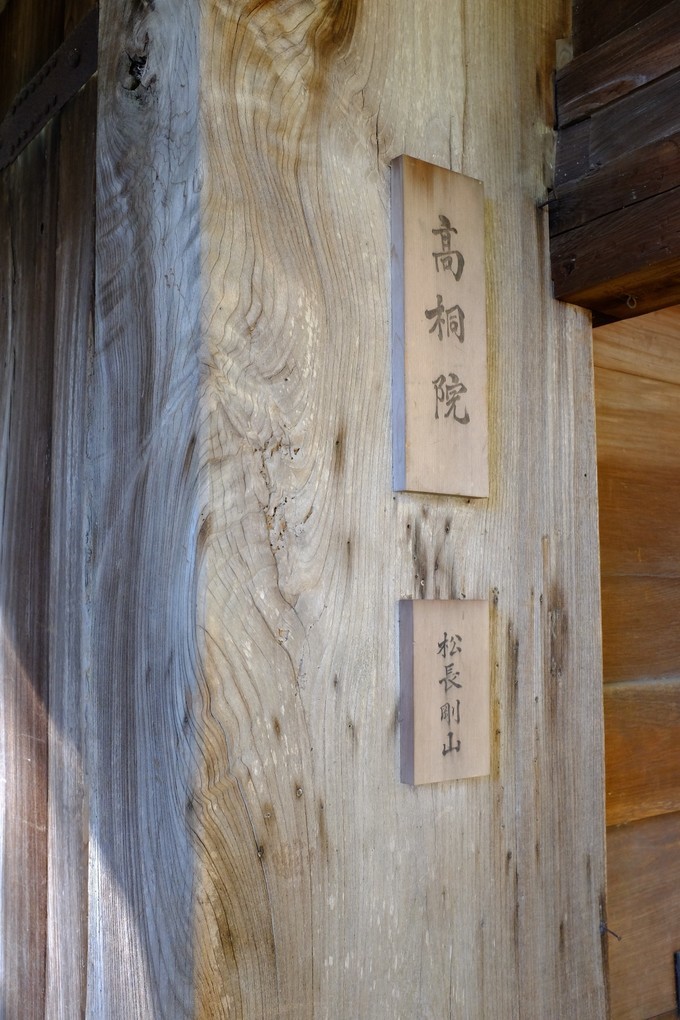 高桐院
松長剛山